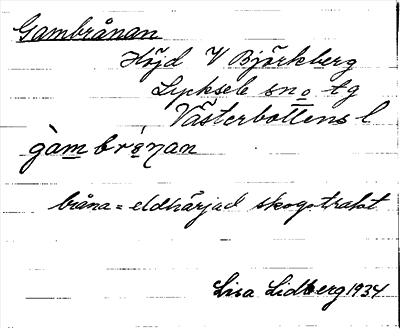 Gambrånan
Höjd V Björkberg
Lycksele sn o tg
Västerbottens l
gàm brónan
bråna = eldhärjad skogstrakt
Lisa Lidberg 1934